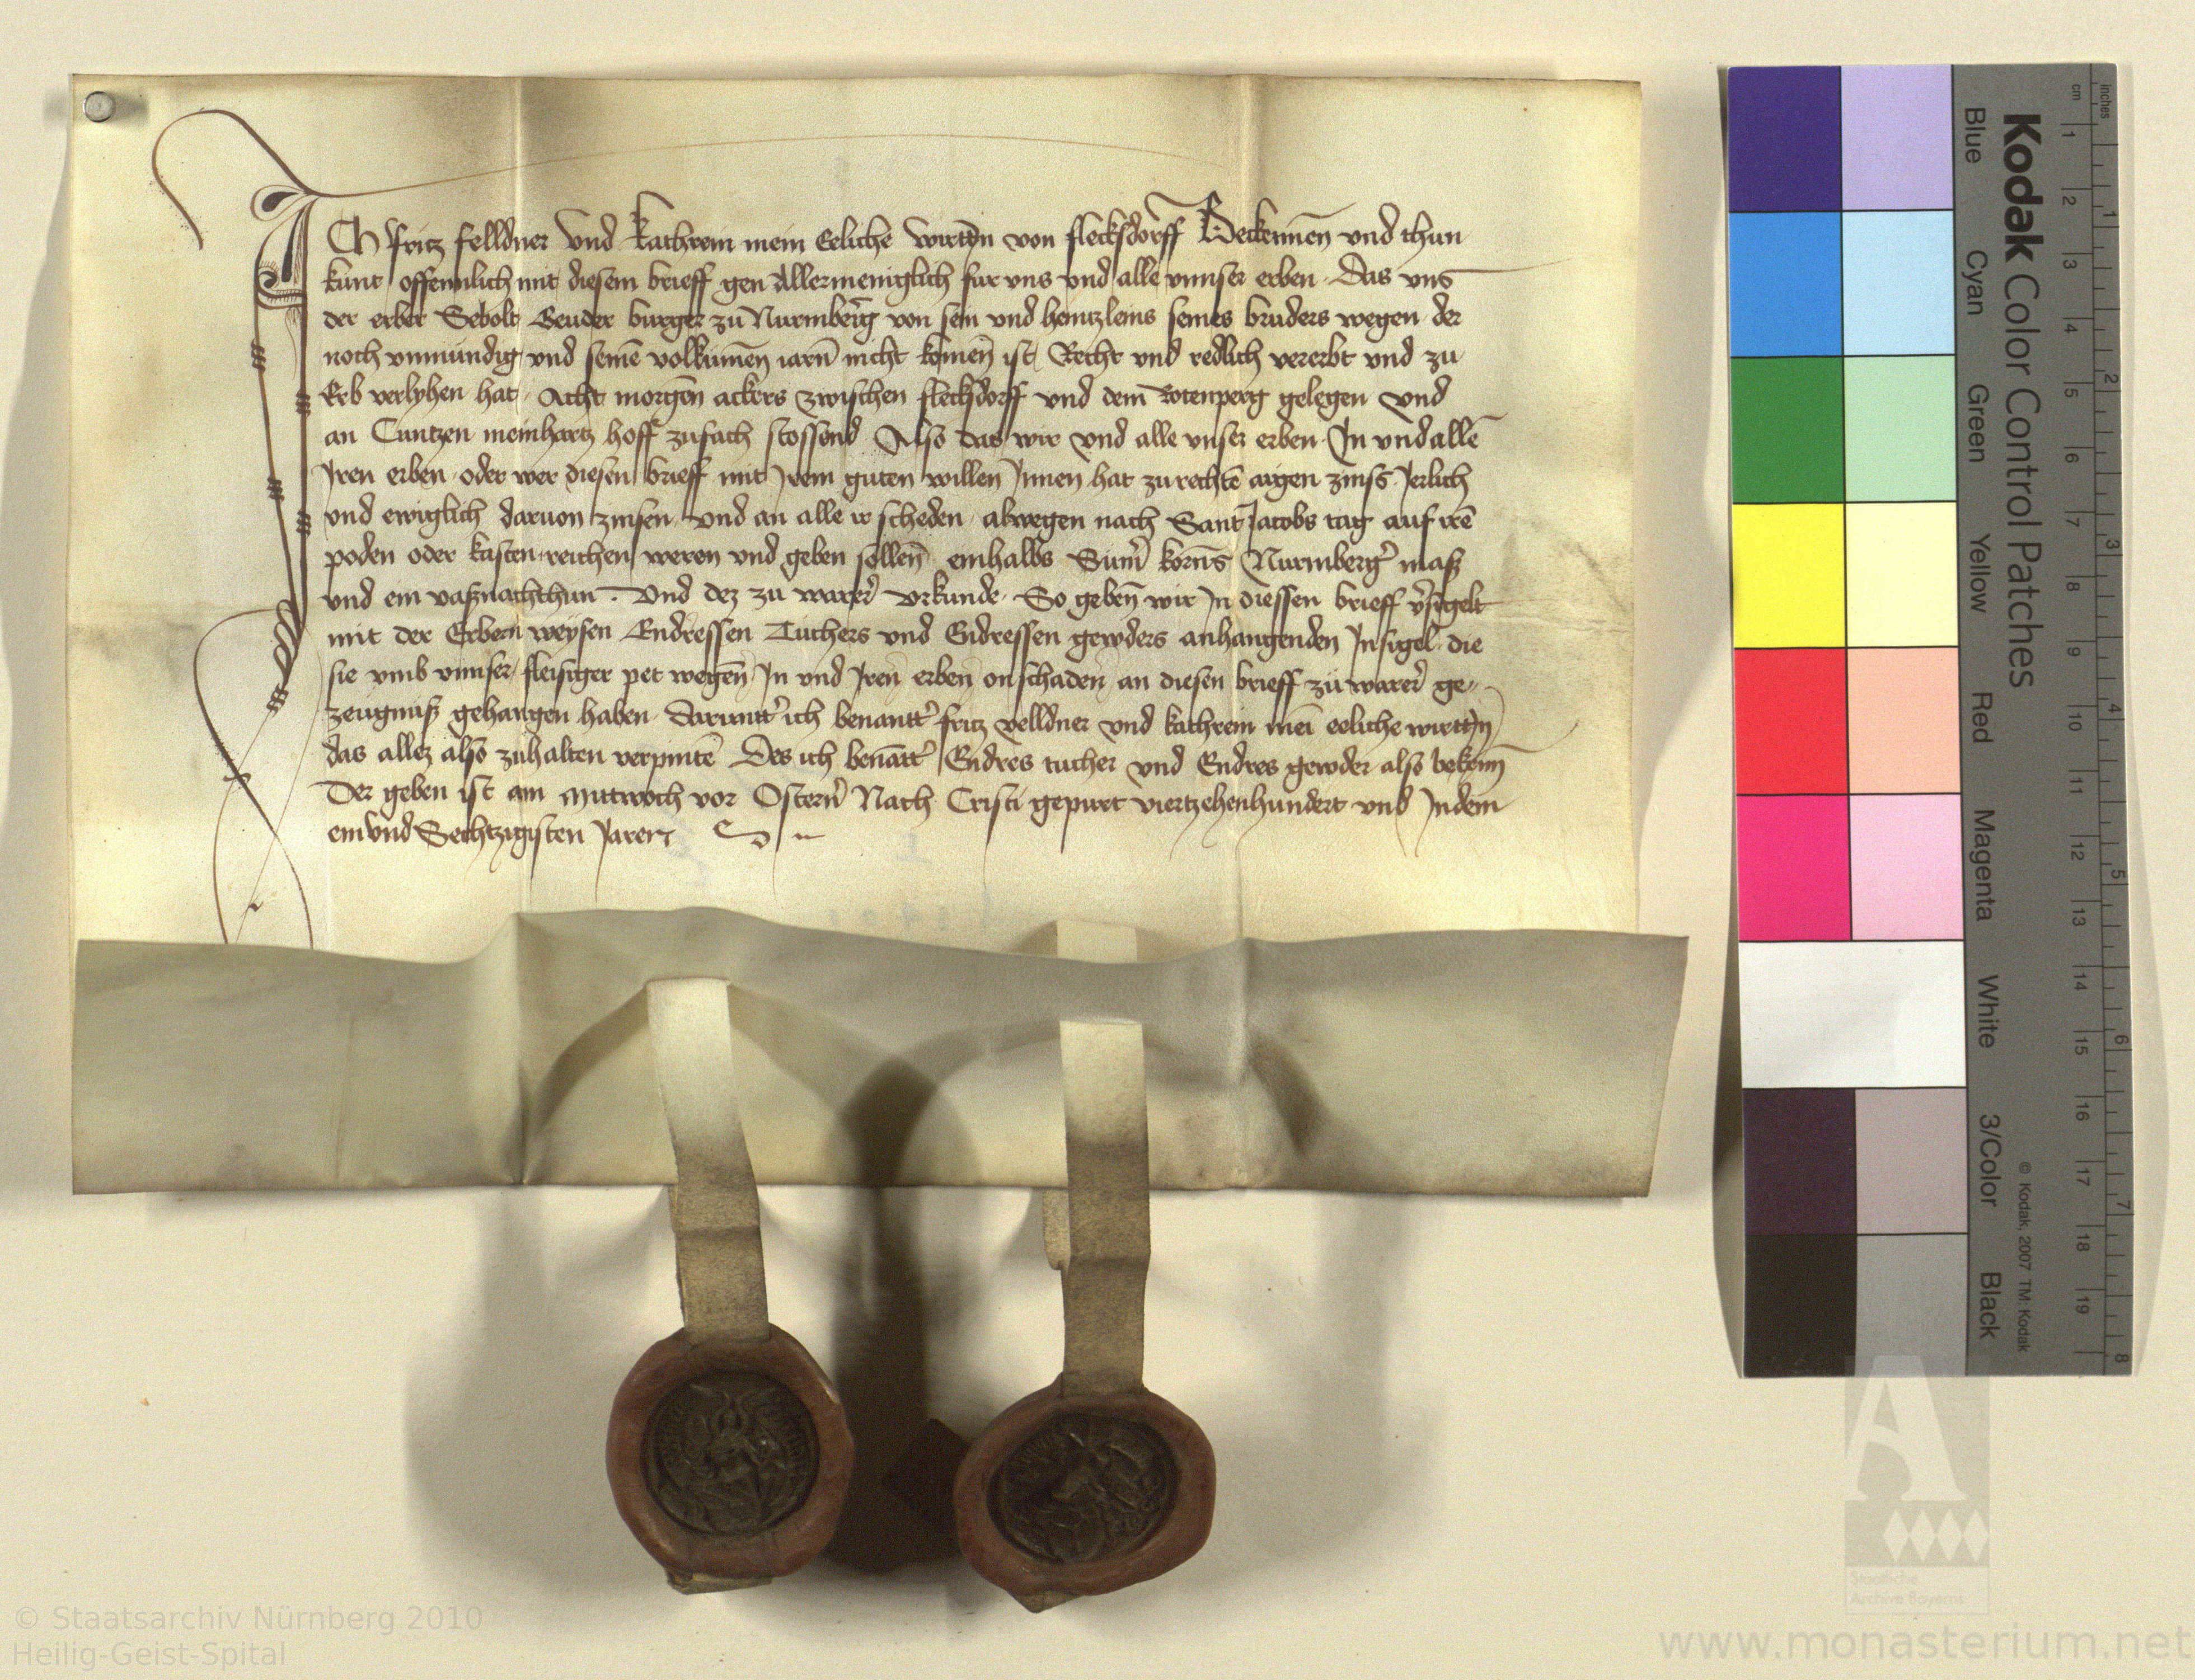 ICh fritz felldner vnd kathrein mein Eeliche wirttin von flecksdorff Bekennen vnd thun
kunt offennlich mit diesem brieff gen Allermeniglich fur vns vnd alle vnnser erben Das vns
der erber Sebolt Beuder burger zu Nurmberg von sein vnd heintzleins seines bruders wegen der
noch vnmundig vnd seinē volkumen iarn nicht komen ist Recht vnd redlich vererbt vnd zu
Erb verlyhen hat Acht morgen ackers zwischen flecksdorff vnd dem Rotenperg gelegen vnd
an Cuntzen meinhartz hoff zufach stossend Also das wir vnd alle vnser erben In vnd allē
Iren erben oder wer diesen brieff mit Irem guten willen Innen hat zu rechtē aigen zinss Jerlich
vnd ewiglich daruon zinsen vnd an alle ir scheden alwegen nach Sant Jacobs tag auf irē
poden oder kasten reichen weren vnd geben sollen einhalbs Sumer korns Nurmberger maß
vnd ein vaßnachthun. Vnd dez zu warer vrkunde So geben wir In diessen brieff v̄sigelt
mit der Erbern weysen Endressen Tuchers vnd Endressen gewders anhangenden Insigel die
sie vmb vnnser fleisiger pet wegen In vnd Iren erben on schaden an diesen brieff zu warer ge-
zeugnuß gehangen haben daruntt' ich benantt' fritz velldner vnd kathrein mei eeliche wirttin
das allez also zuhalten verpintē Des ich benātt' Endres tucher vnd Endres gewder also bekenn
Der geben ist am Mitwoch vor Ostern Nach Cristi gepurt viertzehenhundert vnd Indem
ein vnd Sechtzigisten Jaren
Kodak Color Control Patches
Blue Cyan Green Yellow Red Magenta White 3/Color Black
© Kodak, 2007 TM: Kodak
inches 1 2 3 4 5 6 7 8
cm 1 2 3 4 5 6 7 8 9 10 11 12 13 14 15 16 17 18 19
Staatliche
Archive Bayerns
© Staatsarchiv Nürnberg 2010
Heilig-Geist-Spital
www.monasterium.net